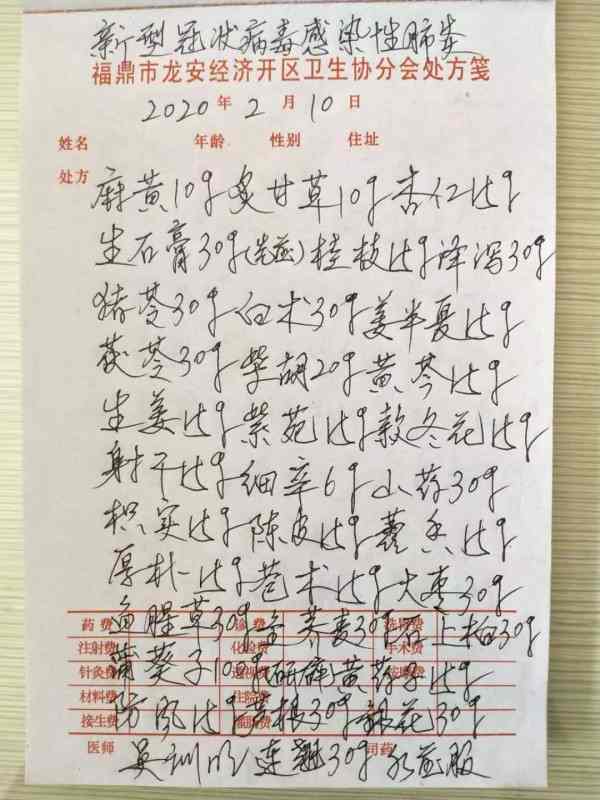 新型冠状病毒感染性肺炎
福鼎市龙安经济开区卫生协分会处方笺
2020年2月10日
姓名 年龄 性别 住址
处方 麻黄10g 炙甘草10g 杏仁15g
生石膏30g(先煎) 桂枝15g 泽泻30g
猪苓30g 白术30g 姜半夏15g
茯苓30g 柴胡20g 黄芩15g
生姜15g 紫苑15g 款冬花15g
射干15g 细辛6g 山药30g
枳实15g 陈皮15g 藿香15g
厚朴15g 苍术15g 大枣30g
药费 鱼腥草30g 金荞麦30g 石上柏30g
注射费 化验费 手术费
针灸费 葵子100g 黄药子15g
材料费 住院费
接生费 防风15g 根30g 银花30g
医师 连翘30g 司药 水煎服